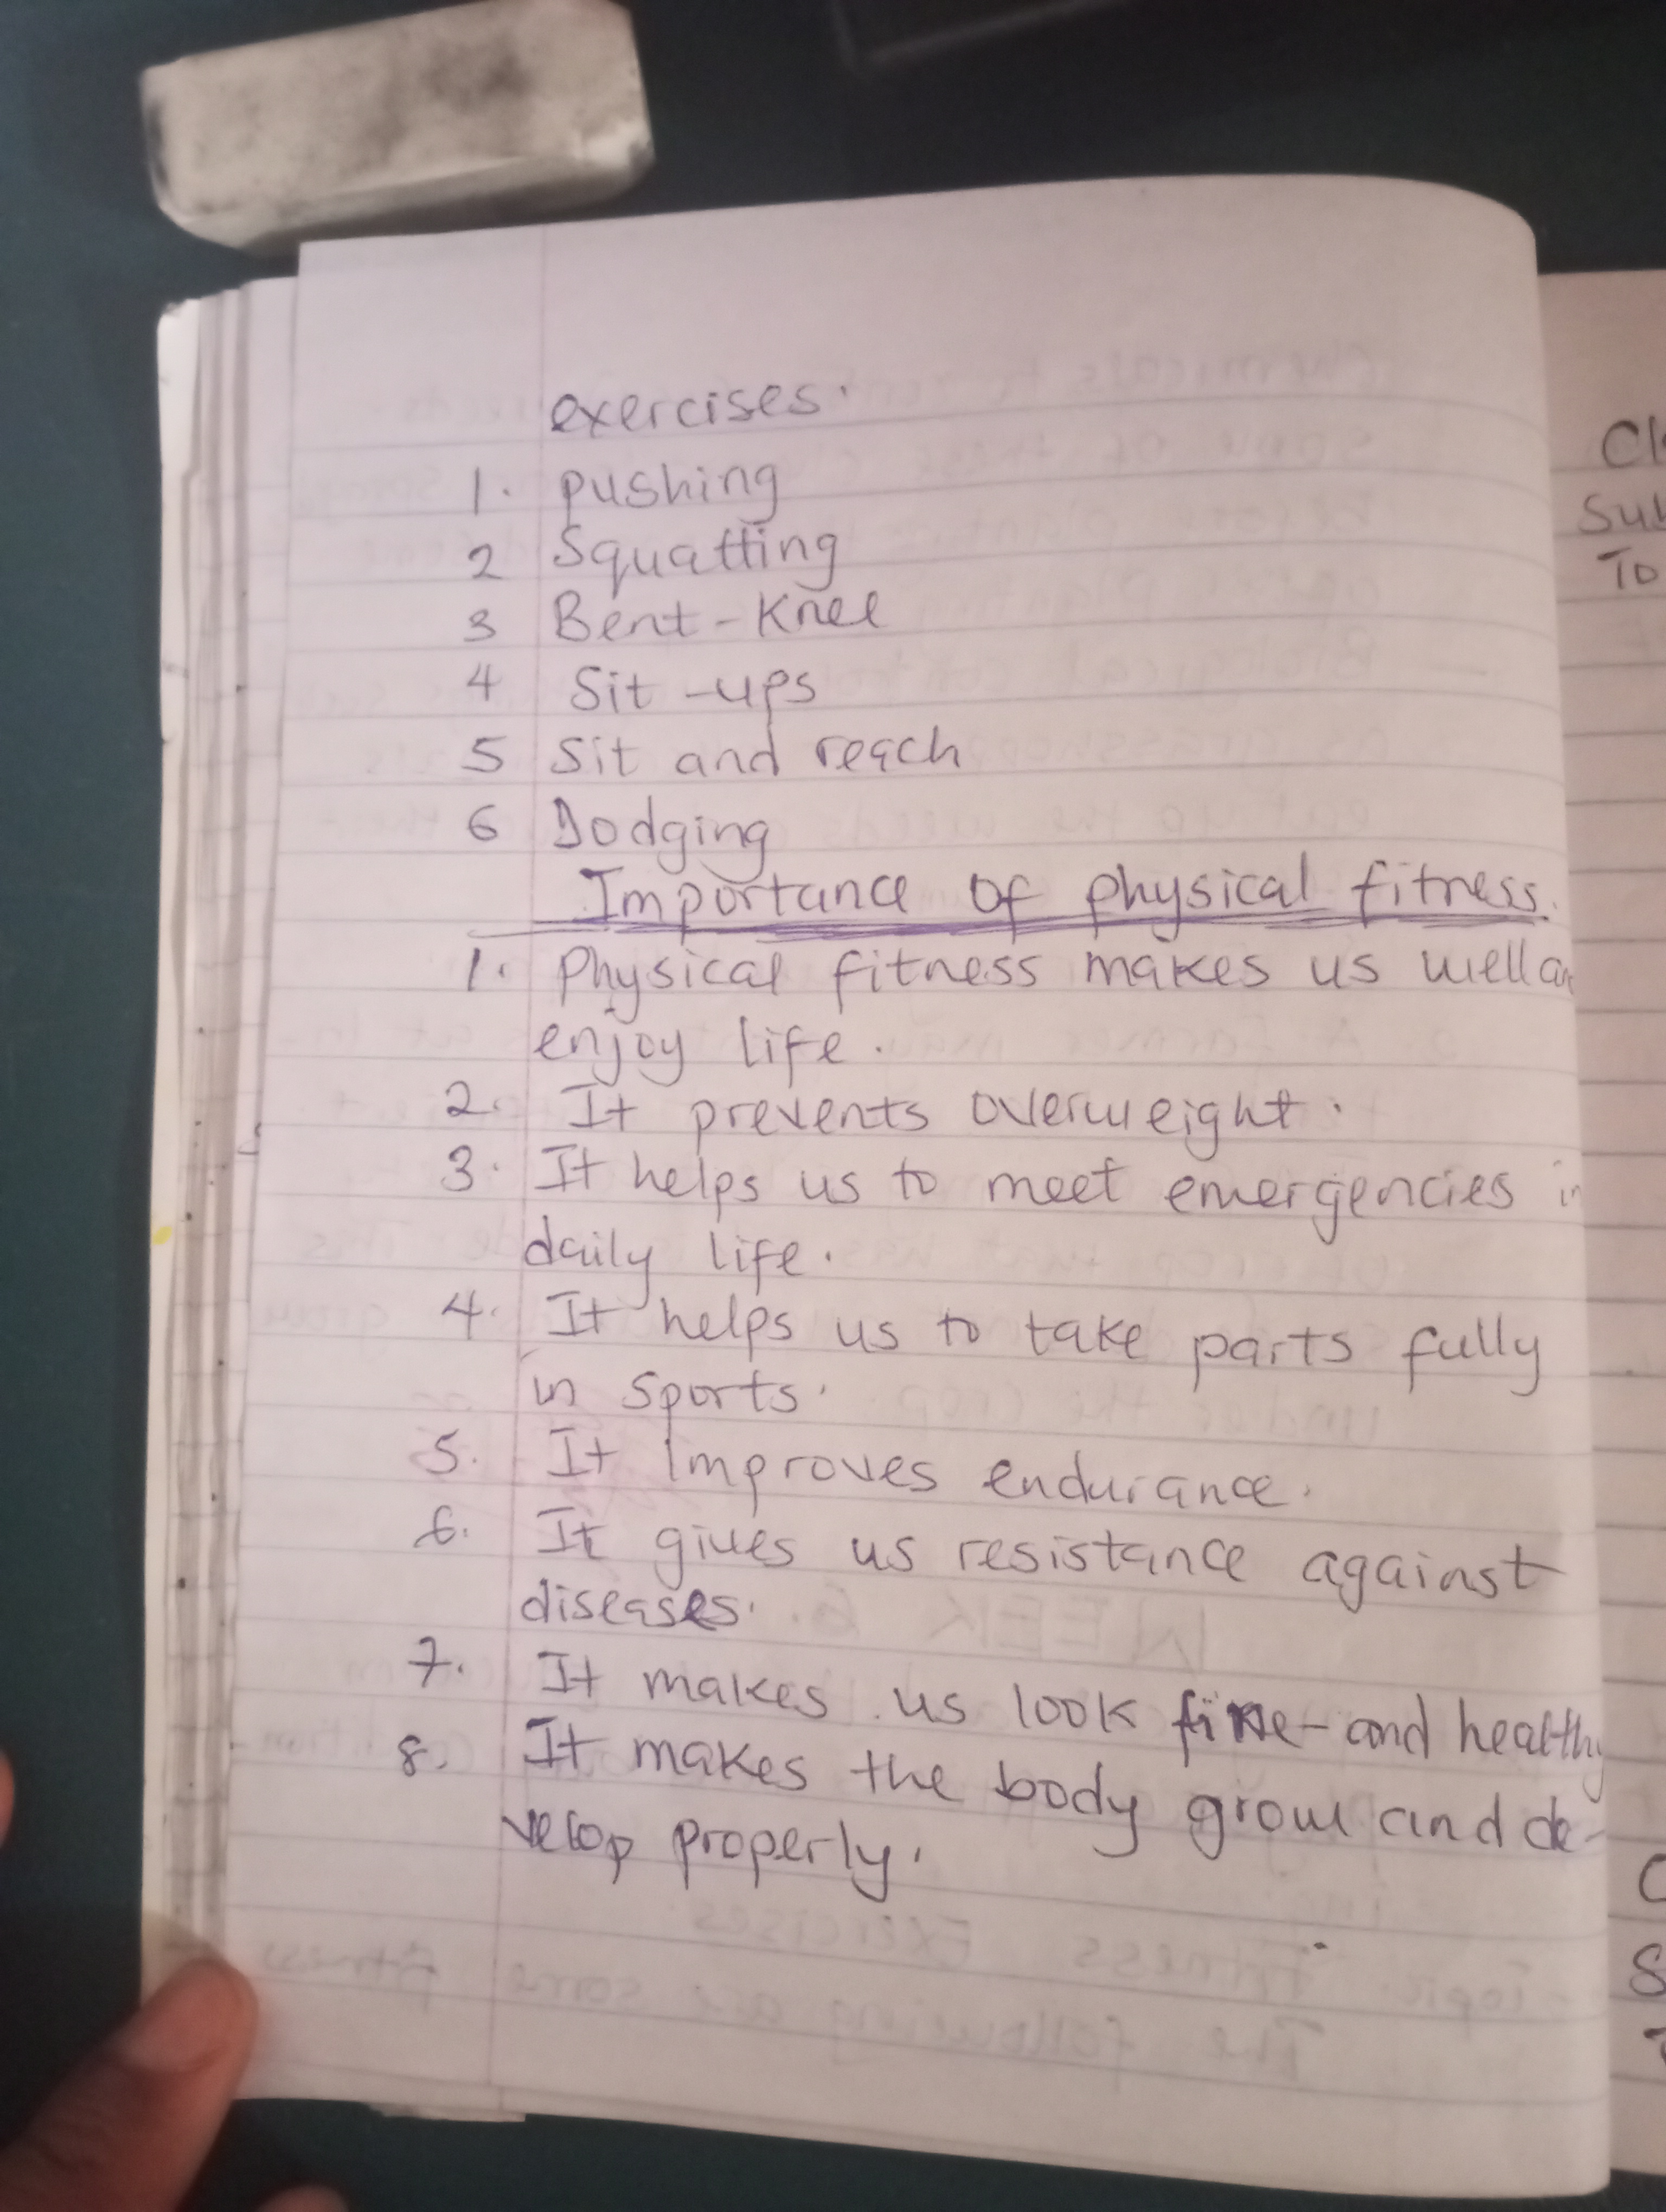 exercises.
1. pushing
2 Squatting
3 Bent-Knee
4 Sit-ups
5 Sit and reach
6 Dodging
Importance of physical fitness.
1. Physical fitness makes us well
enjoy life.
2. It prevents overweight.
3. It helps us to meet emergencies in
daily life.
4. It helps us to take parts fully
in sports.
5. It improves endurance.
6. It gives us resistance against
diseases.
7. It makes us look fine and healthy
8. It makes the body grow and de-
velop properly.
To